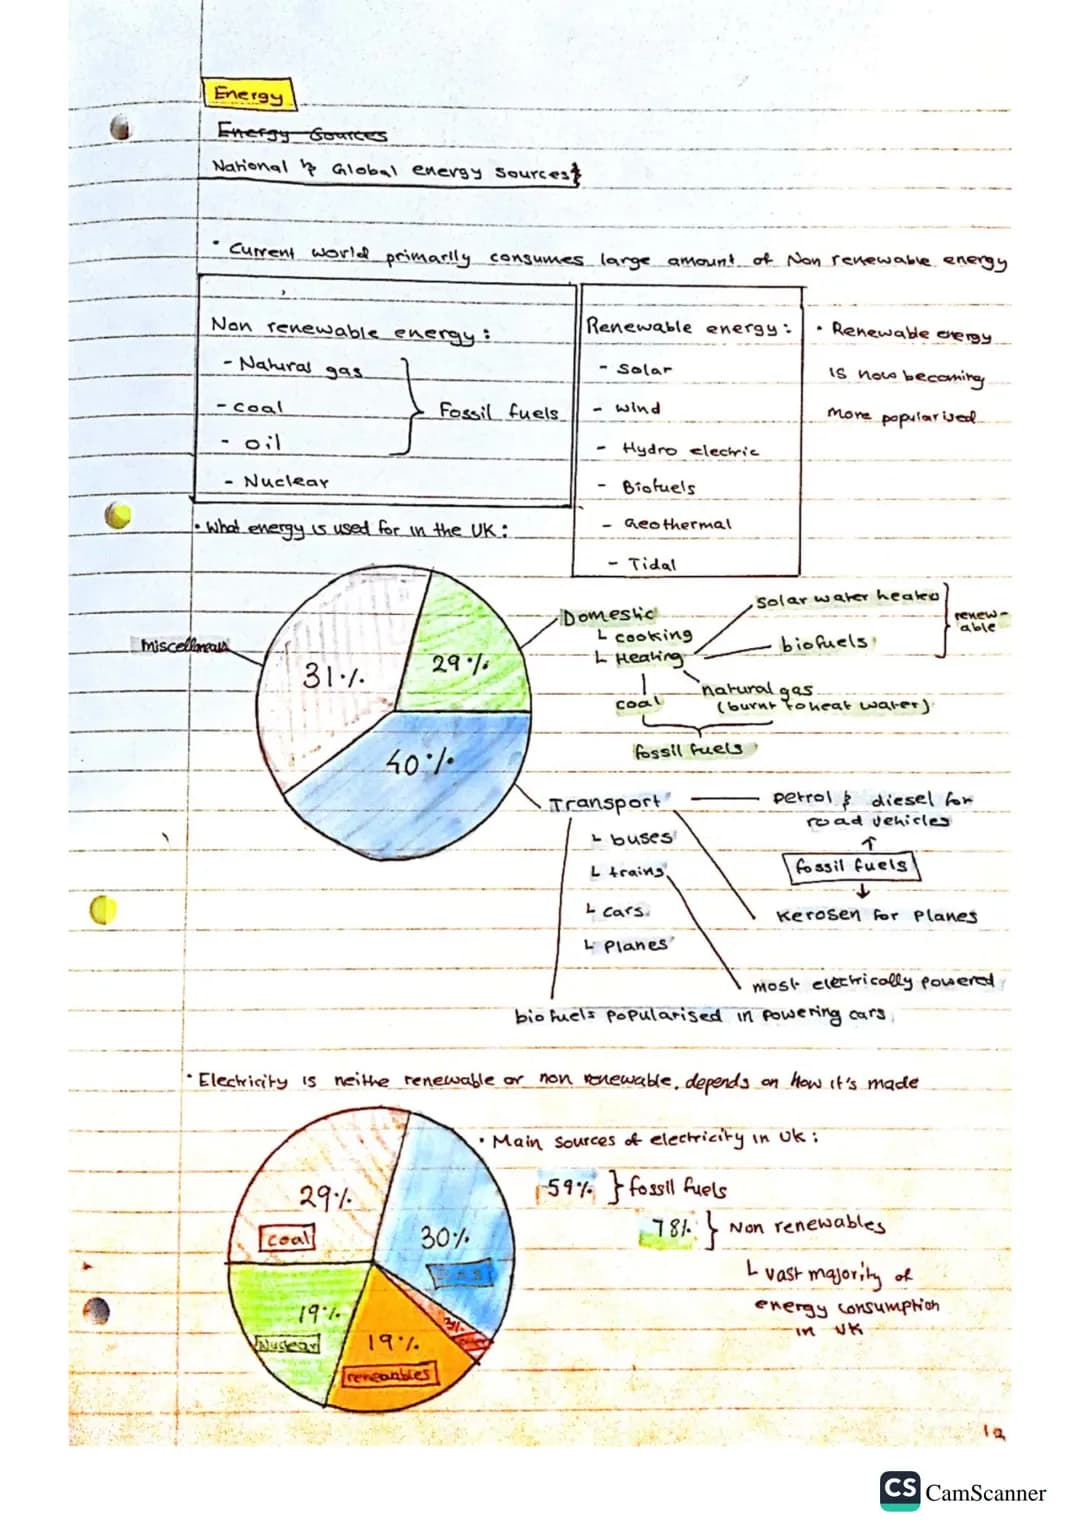 Energy
Energy Sources
National & Global energy sources
• Current world primarily consumes large amount of Non renewable energy
Non renewable energy:
- Natural gas
- coal
- oil
Fossil fuels
- Nuclear
Renewable energy:
- Solar
- wind
- Hydro electric
- Biofuels
- Geothermal
- Tidal
• Renewable energy
is now becoming
more popularised
• What energy is used for in the UK:
miscellaneous
31%
29%
40%
Domestic
cooking
Heating
coal
natural gas
(burnt to heat water)
fossil fuels
solar water heated
biofuels
renew-
able
Transport
buses
trains
cars
Planes
petrol & diesel for
road vehicles
fossil fuels
Kerosen for Planes
most electrically powered
biofuels popularised in powering cars
• Electricity is neithe renewable or non renewable, depends on how it's made
• Main sources of electricity in UK:
29%
coal
30%
19%
Nuclear
19%
renewables
3%
59% } fossil fuels
78% } Non renewables
vast majority of
energy consumption
in UK
CS CamScanner